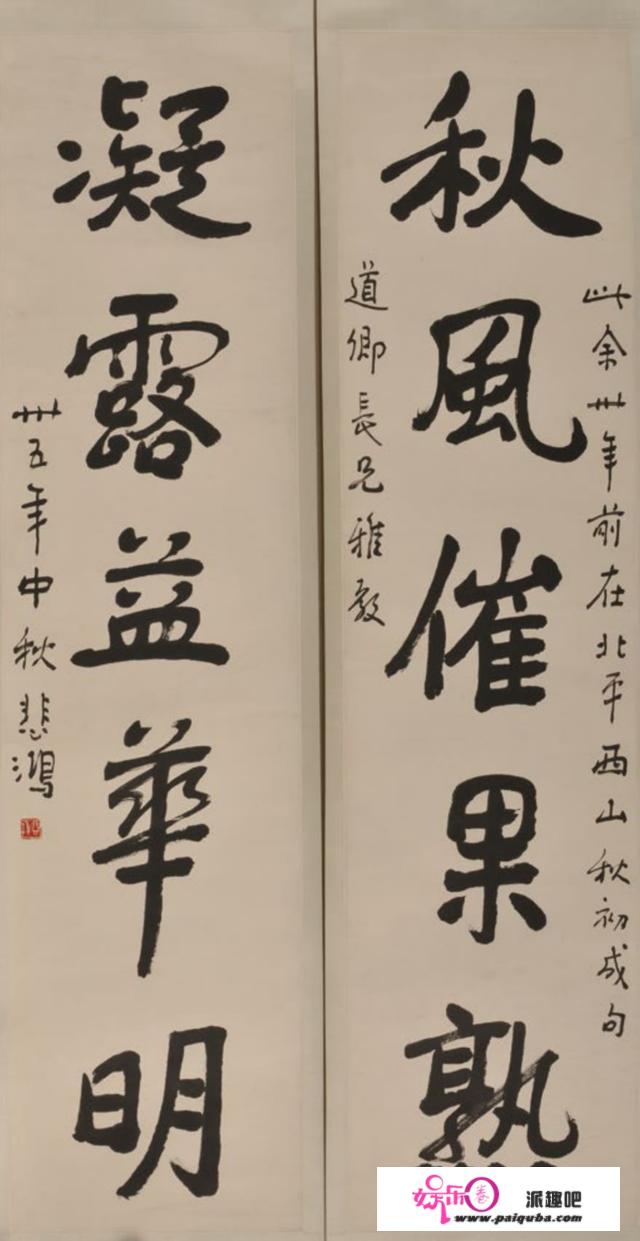 此余卅年前在北平西山秋初成句
秋風催果熟
道卿長兄雅教
凝露益華明
卅五年中秋悲鴻
娱乐圈
派趣吧
www.paiquba.com